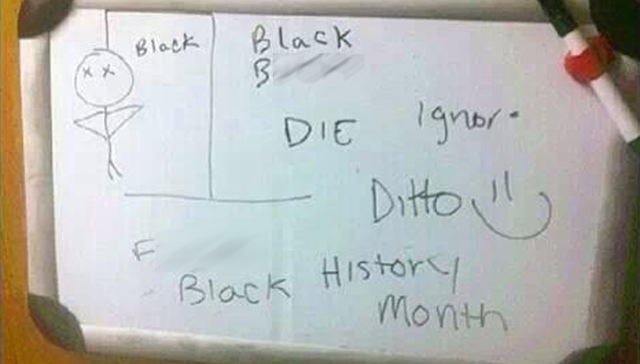 Black
x x
Black
B
DIE
Ignor.
Ditto
F
Black History
Month